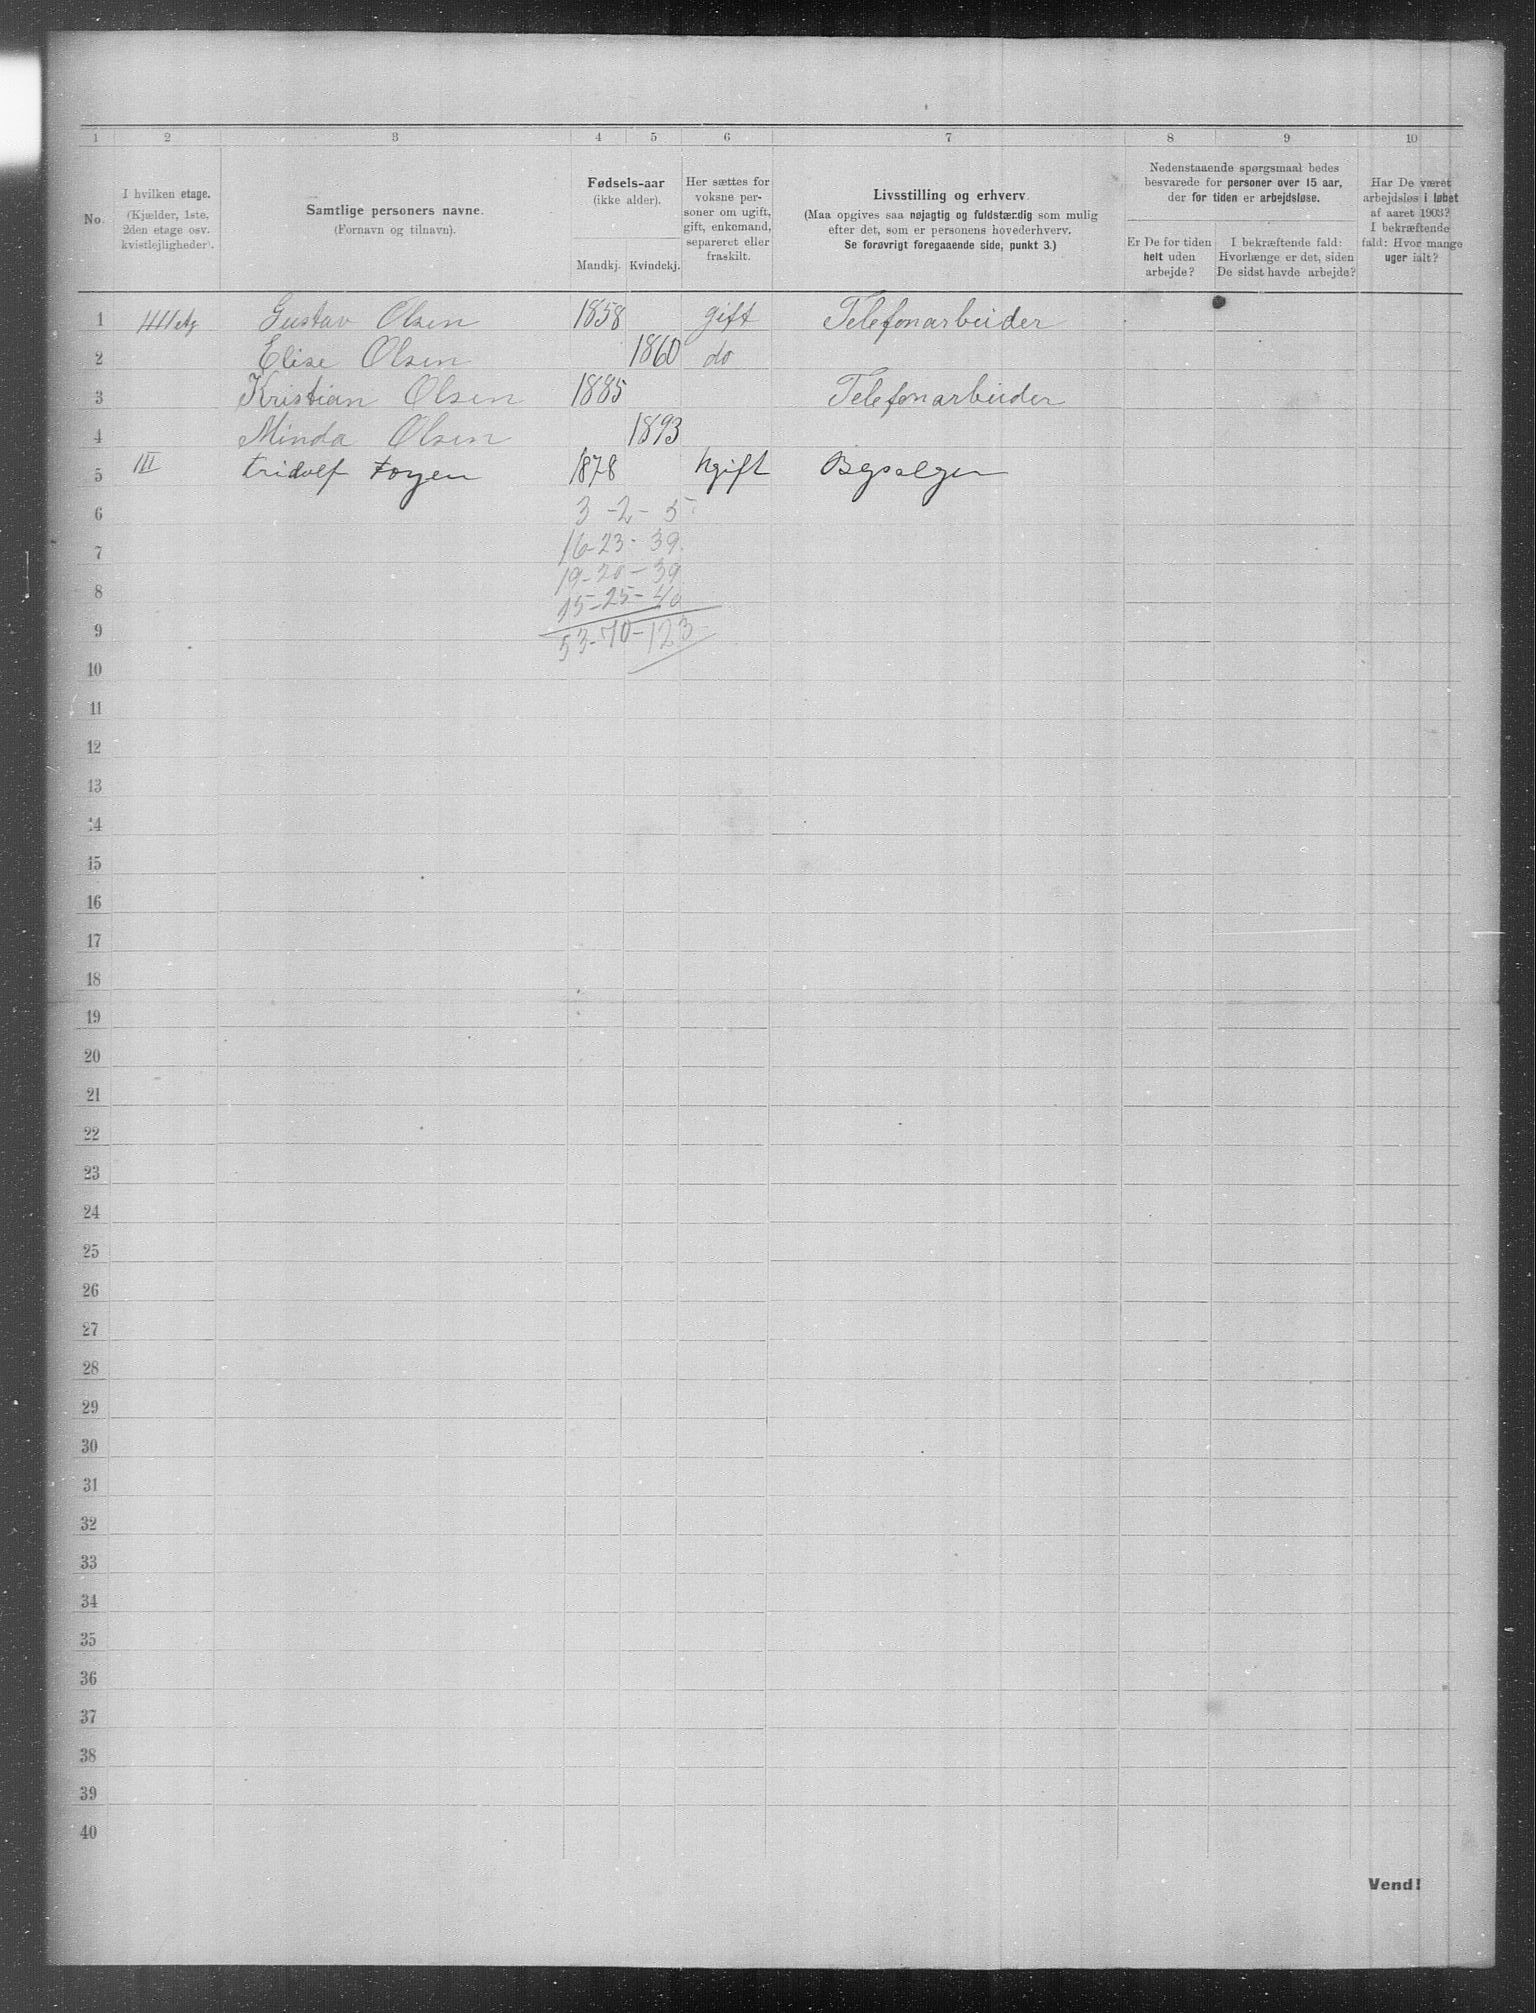 1 2 3 4 5 6 7 8 9 10
No.
I hvilken etage.
(Kjælder, 1ste,
2den etage osv.
kvistlejligheder).
Samtlige personers navne.
(Fornavn og tilnavn).
Fødsels-aar
(ikke alder).
Mandkj. Kvindekj.
Her sættes for
voksne per-
soner om ugift,
gift, enkemand,
separeret eller
fraskilt.
Livsstilling og erhverv
(Maa opgives saa nøjagtig og fuldstærdig som mulig
efter det, som er personens hovederhverv.
Se forøvrigt foregaaende side, punkt 3.)
Nedenstaaende spørgsmaal bedes
besvarede for personer over 15 aar,
der for tiden er arbejdsløse.
Er De for tiden
helt uden
arbejde?
I bekræftende fald:
Hvorlænge er det, siden
De sidst havde arbejde?
Har De været
arbejdsløs i løbet
af aaret 1903?
I bekræftende
fald: Hvor mange
uger ialt?
1 Gustav Olsen 1858 gift Telefonarbeider
2 Elise Olsen 1860 do
3 Kristian Olsen 1885 Telefonarbeider
4 Minda Olsen 1893
5 III Foyen 1878 Ugift
6 3-2-5
7 16-23-39
19-20-39
8 15-25-40
9 53-70-123
10
11
12
13
14
15
16
17
18
19
20
21
22
23
24
25
26
27
28
29
30
31
32
33
34
35
36
37
38
39
40
Vend!